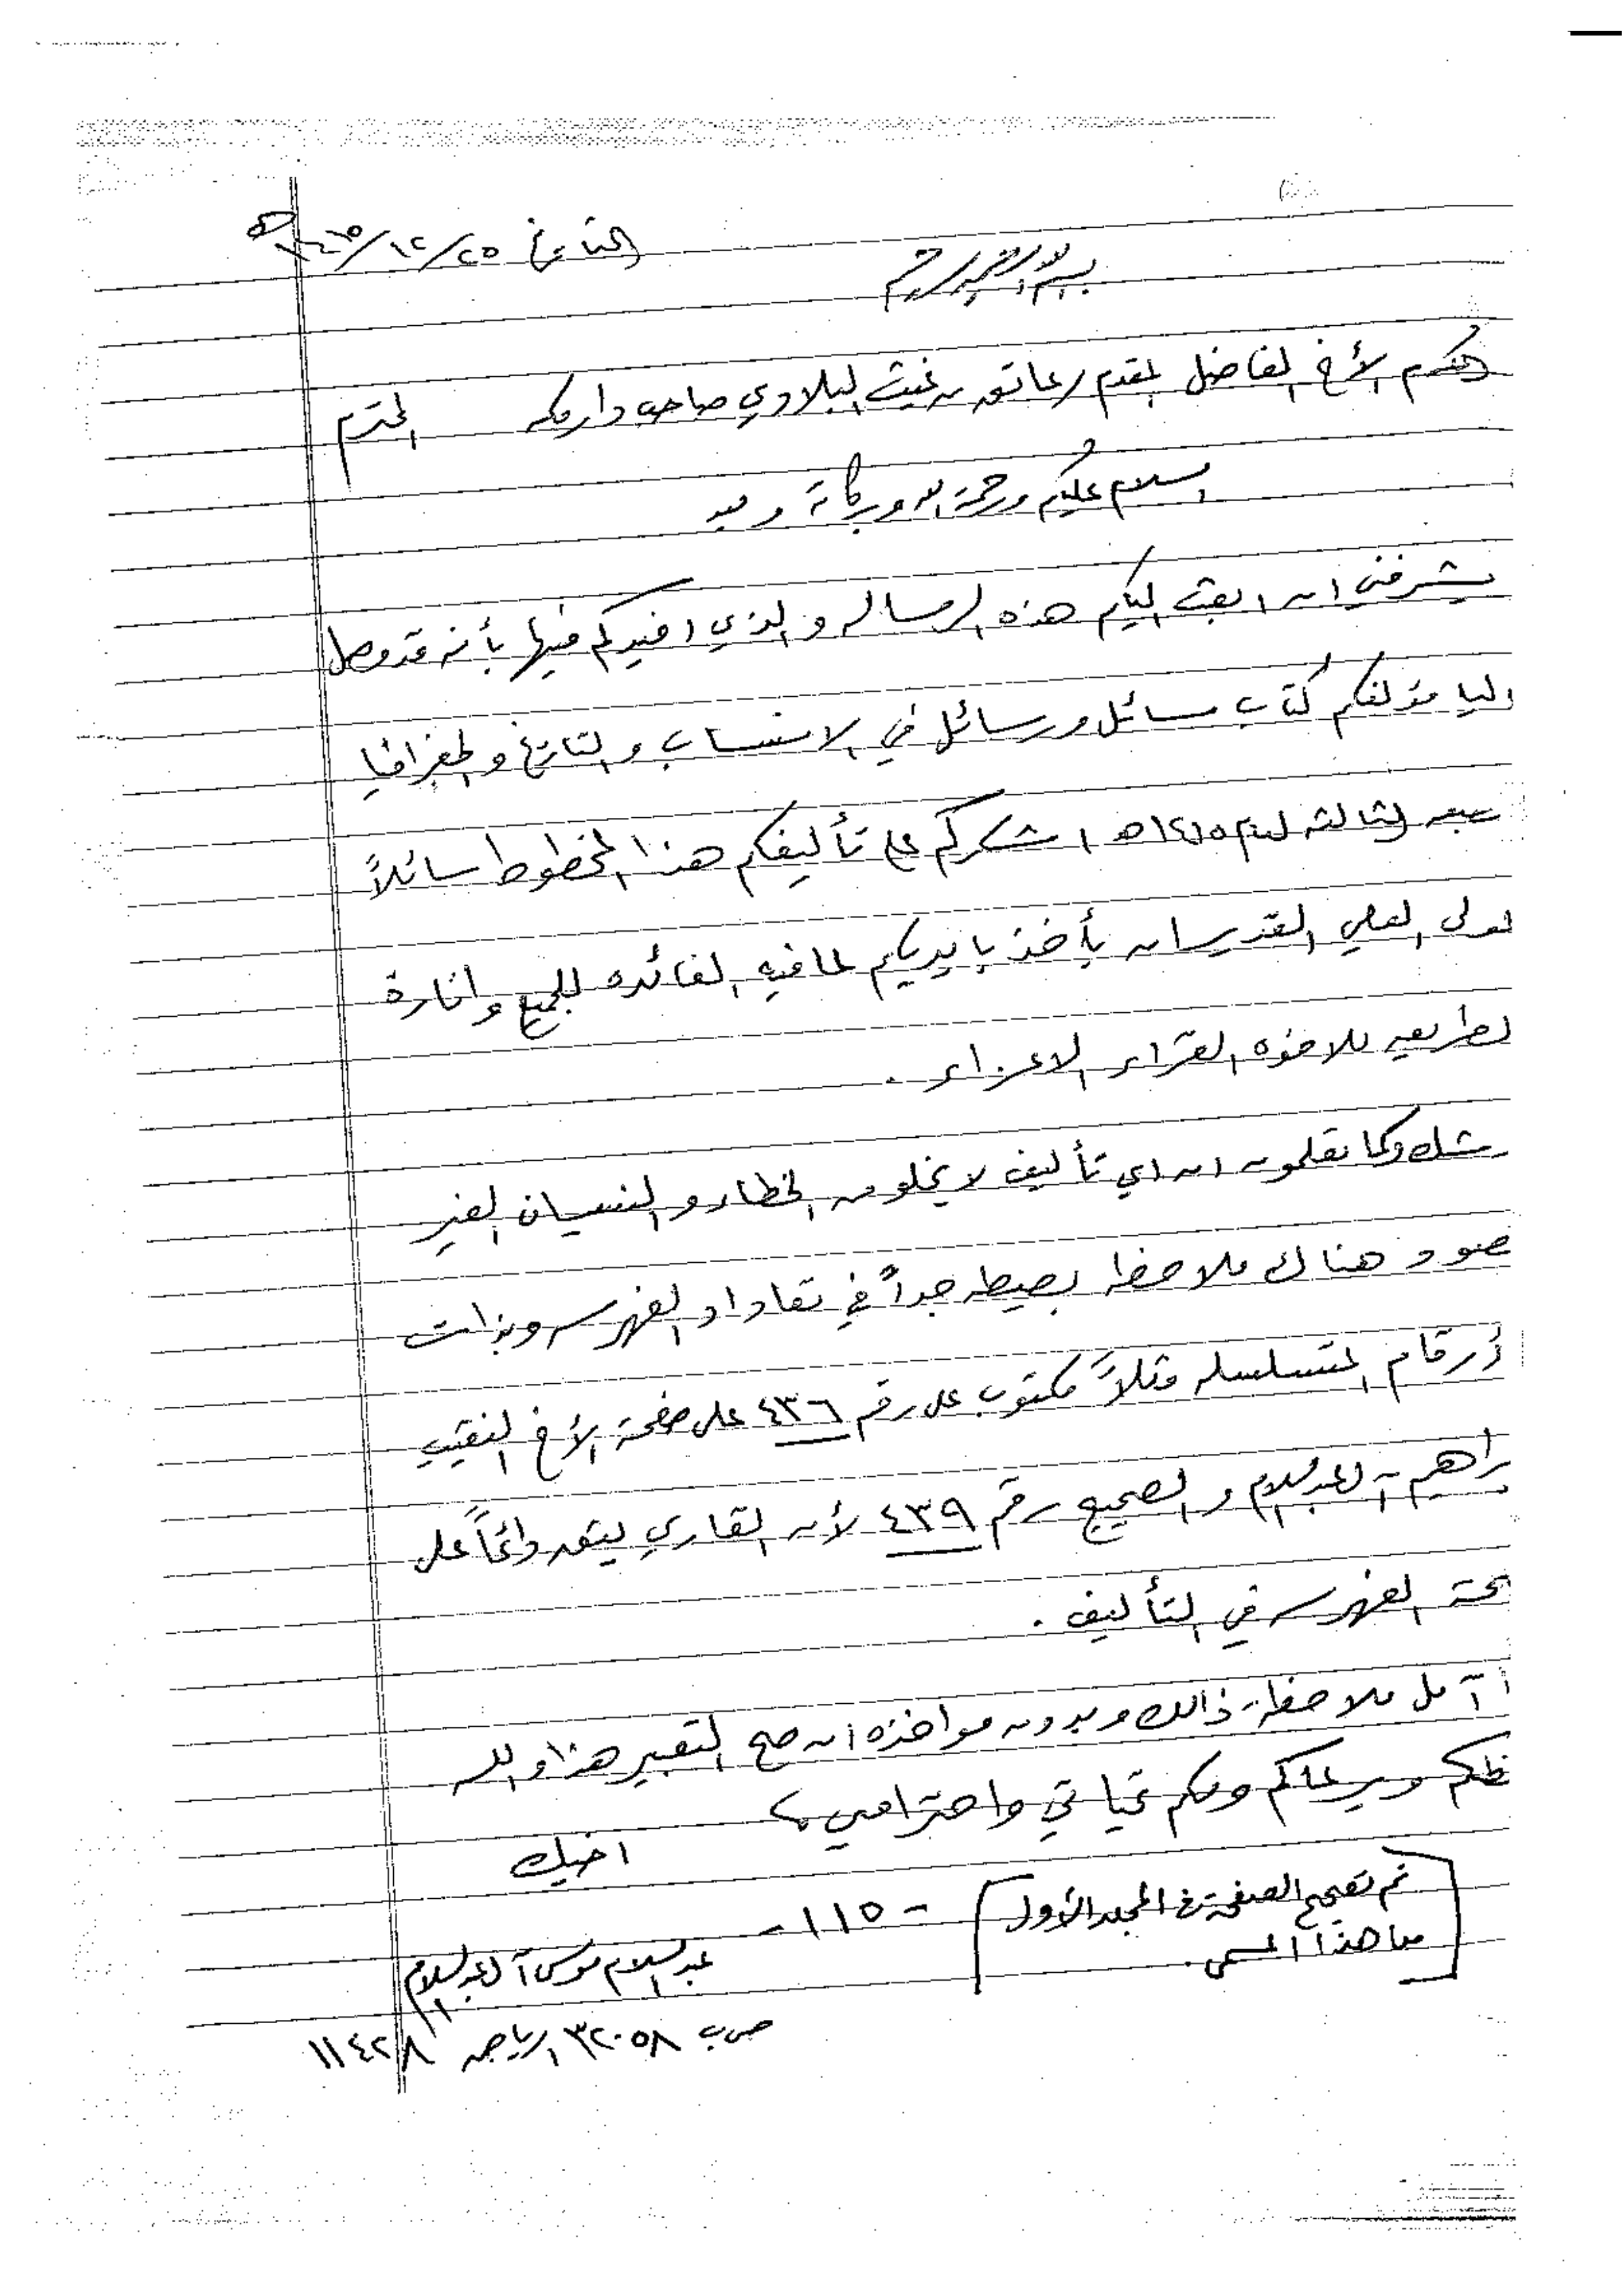 بسم الله الرحمن الرحيم
التاريخ ٢٥/١٢/١٤١٥هـ
المكرم الأخ الفاضل المقدم/ عاتق بن غيث البلادي صاحب دار مكه المحترم
السلام عليكم ورحمة الله وبركاته وبعد
يشرفني ان ابعث اليكم هذه الرساله والذي افيدكم فيها بأنه قد وصل
الينا مؤلفكم كتاب مسائل ورسائل في الانساب والتاريخ والجغرافيا
طبعه الثالثه لعام ١٤١٥هـ اشكركم على تأليفكم هذا المخطوط سائلاً
لمولى العلي القدير ان يأخذ بايديكم لما فيه الفائده للجميع وانارة
لطريق للاخوه القراء الاعزاء.
شك وكما تعلمون ان اي تأليف لا يخلو من الخطاء والنسيان الغير
صود هناك ملاحظه بصيطه جداً في تعداد الفهرس وبذات
أرقام المتسلسله مثلاً مكتوب على رقم ٤٣٦ على صفحة الأخ النقيب
براهيم آل عبدالسلام والصحيح رقم ٤٣٩ لأن القاري يعتمد دائماً على
صحة الفهرس في التأليف.
آمل ملاحظة ذالك وبدون مواخذه ان صح التعبير هذا والله
ظكم ويرعاكم ولكم تحياتي واحترامي،،
اخيك
عبدالسلام موسى آل عبدالسلام
ص.ب ٣٢٠٥٨ الرياض ١١٤٢٨
-١١٥-
[تم تصحيح الصفحة في المجلد الأول
من هذا المسمى.]